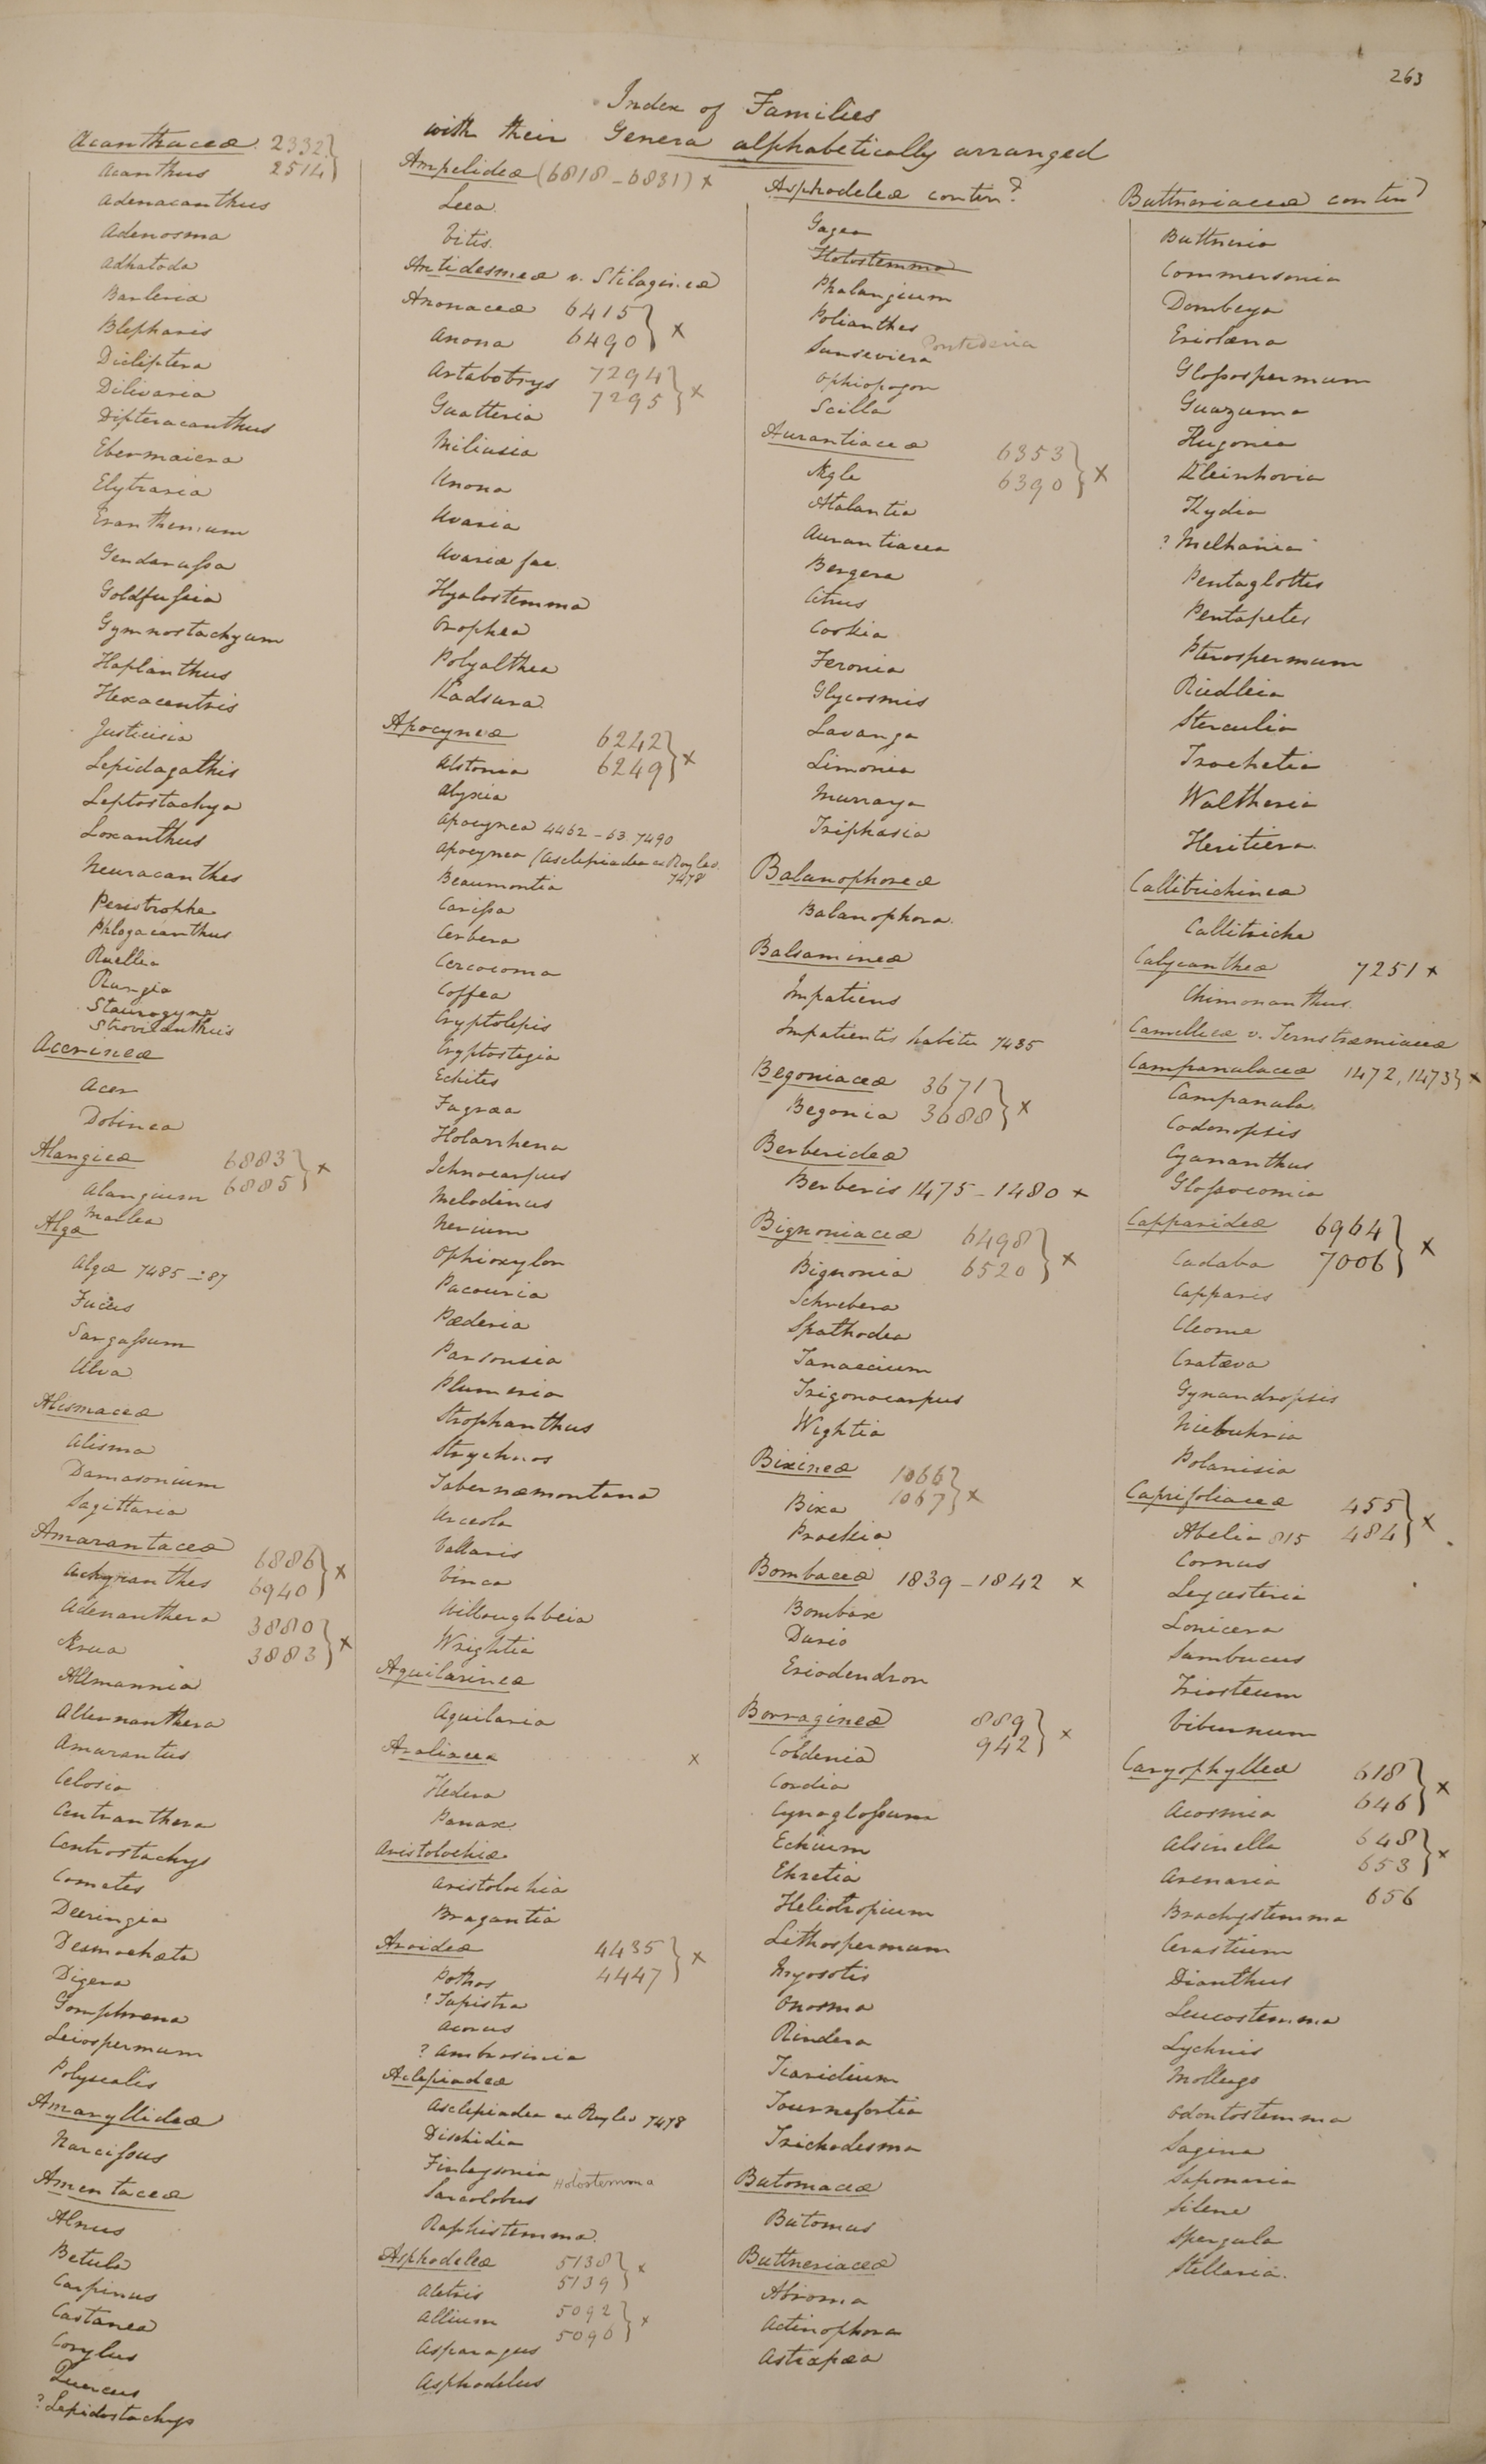 263
Index of Families
with their Genera alphabetically arranged
Acanthaceæ 2332
Acanthus 2514
Adenacanthus
Adenosma
Adhatoda
Barleria
Blepharis
Dicliptera
Dilivaria
Dipteracanthus
Ebermaiera
Elytraria
Eranthemum
Gendarussa
Goldfussia
Gymnostachyum
Haplanthus
Hexacentris
Justicia
Lepidagathis
Leptostachya
Loxanthus
Neuracanthus
Peristrophe
Phlogacanthus
Ruellia
Rungia
Staurogyna
Strobilanthus
Acerineæ
Acer
Dobinea
Alangieæ 6883
Alangium 6885 } x
Marlea
Algæ
Algæ 7485-87
Fucus
Sargassum
Ulva
Alismaceæ
Alisma
Damasonium
Sagittaria
Amarantaceæ 6886
Achyranthes 6940 } x
Adenanthera 3880
Ærua 3883 } x
Allmannia
Alternanthera
Amarantus
Celosia
Centranthera
Centrostachys
Cometes
Deeringia
Desmochæta
Digera
Gomphrena
Leiospermum
Polyscalis
Amaryllideæ
Narcissus
Amentaceæ
Alnus
Betula
Carpinus
Castanea
Corylus
Quercus
? Lepidostachys
Ampelideæ (6818-6831) x
Leea
Vitis
Antidesmeæ v. Stilagineæ
Anonaceæ 6415
Anona 6490 } x
Artabotrys 7294
Guatteria 7295 } x
Miliusia
Unona
Uvaria
Uvariæ fac.
Hyalostemma
Orophea
Polyalthea
Kadsura
Apocyneæ 6242
Alstonia 6249 } x
Alyxia
Apocynea 4462-63. 7490
Apocynea (Asclepiadea ex Royleo. 7478
Beaumontia
Carissa
Cerbera
Cercocoma
Coffea
Cryptolepis
Cryptostegia
Echites
Fagræa
Holarrhena
Ichnocarpus
Melodinus
Nerium
Ophioxylon
Pacouria
Pæderia
Parsonsia
Plumeria
Strophanthus
Strychnos
Tabernæmontana
Urceola
Vallaris
Vinca
Willoughbeia
Wrightia
Aquilarineæ
Aquilaria
Araliacea x
Hedera
Panax
Aristolochiæ
Aristolochia
Bragantia
Aroideæ 4435
Pothos 4447 } x
? Tupistra
Acorus
? Ambrosinia
Aclepiadeæ
Asclepiadea ex Royleo 7478
Dischidia
Finlaysonia
Holostemma
Sarcolobus
Raphistemma
Asphodeleæ 5138
Aletris 5139 } x
Allium 5092
Asparagus 5096 } x
Asphodelus
Asphodeleæ contin?d
Gagea
Holostemma
Phalangium
Polianthes
Pontederia
Sanseviera
Ophiopogon
Scilla
Aurantiaceæ 6353
Ægle 6390 } x
Atalantia
Aurantiacea
Bergera
Citrus
Cookia
Feronia
Glycosmis
Lavanga
Limonia
Murraya
Triphasia
Balanophoreæ
Balanophora
Balsamineæ
Impatiens
Impatientis habitu 7435
Begoniaceæ 3671
Begonia 3688 } x
Berberideæ
Berberis 1475-1480 x
Bignoniaceæ 6498
Bignonia 6520 } x
Schrebera
Spathodea
Tanaecium
Trigonocarpus
Wightia
Bixineæ 1066
Bixa 1067 } x
Prockia
Bombaceæ 1839-1842 x
Bombax
Durio
Eriodendron
Borragineæ 889
Coldenia 942 } x
Cordia
Cynoglossum
Echium
Ehretia
Heliotropium
Lithospermum
Myosotis
Onosma
Rindera
Tiaridium
Tournefortia
Trichodesma
Butomaceæ
Butomus
Buttneriaceæ
Abroma
Actinophora
Astrapæa
Buttneriaceæ contind
Buttneria
Commersonia
Dombeya
Eriolæna
Glossospermum
Guazuma
Hugonia
Kleinhovia
Kydia
? Melhania
Pentaglottis
Pentapetes
Pterospermum
Riedleia
Sterculia
Trochetia
Waltheria
Heritiera
Callitrichineæ
Callitriche
Calycantheæ 7251 x
Chimonanthus
Camellieæ v. Ternstræmiaceæ
Campanulaceæ 1472, 1473} x
Campanula
Codonopsis
Cyananthus
Glossocomia
Capparideæ 6964
Cadaba 7006 } x
Capparis
Cleome
Cratæva
Gynandropsis
Niebuhria
Polanisia
Caprifoliaceæ 455
Abelia 815 484 } x
Cornus
Leycesteria
Lonicera
Sambucus
Triosteum
Viburnum
Caryophylleæ 618
Acosmia 646 } x
Alsinella 648
Arenaria 653 } x
656
Brachystemma
Cerastium
Dianthus
Leucostemma
Lychnis
Mollugo
Odontostemma
Sagina
Saponaria
Silene
Spergula
Stellaria